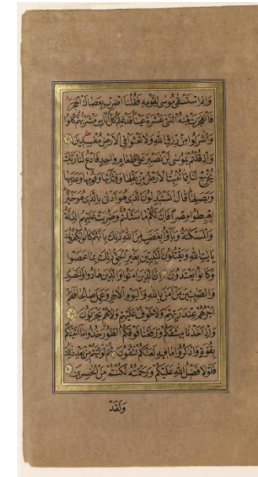 وَإِذِ اسْتَسْقٰى مُوسٰى لِقَوْمِهِ فَقُلْنَا اضْرِبْ بِعَصَاكَ الْحَجَرَ
فَانْفَجَرَتْ مِنْهُ اثْنَتَا عَشْرَةَ عَيْنًا قَدْ عَلِمَ كُلُّ أُنَاسٍ مَشْرَبَهُمْ كُلُوا
وَاشْرَبُوا مِنْ رِزْقِ اللّٰهِ وَلَا تَعْثَوْا فِي الْأَرْضِ مُفْسِدِينَ
وَإِذْ قُلْتُمْ يٰمُوسٰى لَنْ نَصْبِرَ عَلٰى طَعَامٍ وَاحِدٍ فَادْعُ لَنَا رَبَّكَ
يُخْرِجْ لَنَا مِمَّا تُنْبِتُ الْأَرْضُ مِنْ بَقْلِهَا وَقِثَّائِهَا وَفُومِهَا وَعَدَسِهَا
وَبَصَلِهَا قَالَ أَتَسْتَبْدِلُونَ الَّذِي هُوَ أَدْنٰى بِالَّذِي هُوَ خَيْرٌ
اهْبِطُوا مِصْرًا فَإِنَّ لَكُمْ مَا سَأَلْتُمْ وَضُرِبَتْ عَلَيْهِمُ الذِّلَّةُ
وَالْمَسْكَنَةُ وَبَاؤُا بِغَضَبٍ مِنَ اللّٰهِ ذٰلِكَ بِأَنَّهُمْ كَانُوا يَكْفُرُونَ
بِاٰيَاتِ اللّٰهِ وَيَقْتُلُونَ النَّبِيِّينَ بِغَيْرِ الْحَقِّ ذٰلِكَ بِمَا عَصَوْا
وَكَانُوا يَعْتَدُونَ إِنَّ الَّذِينَ اٰمَنُوا وَالَّذِينَ هَادُوا وَالنَّصَارٰى
وَالصَّابِئِينَ مَنْ اٰمَنَ بِاللّٰهِ وَالْيَوْمِ الْاٰخِرِ وَعَمِلَ صَالِحًا فَلَهُمْ
أَجْرُهُمْ عِنْدَ رَبِّهِمْ وَلَا خَوْفٌ عَلَيْهِمْ وَلَا هُمْ يَحْزَنُونَ
وَإِذْ أَخَذْنَا مِيثَاقَكُمْ وَرَفَعْنَا فَوْقَكُمُ الطُّورَ خُذُوا مَا اٰتَيْنَاكُمْ
بِقُوَّةٍ وَاذْكُرُوا مَا فِيهِ لَعَلَّكُمْ تَتَّقُونَ ثُمَّ تَوَلَّيْتُمْ مِنْ بَعْدِ ذٰلِكَ
فَلَوْلَا فَضْلُ اللّٰهِ عَلَيْكُمْ وَرَحْمَتُهُ لَكُنْتُمْ مِنَ الْخَاسِرِينَ
وَلَقَدْ